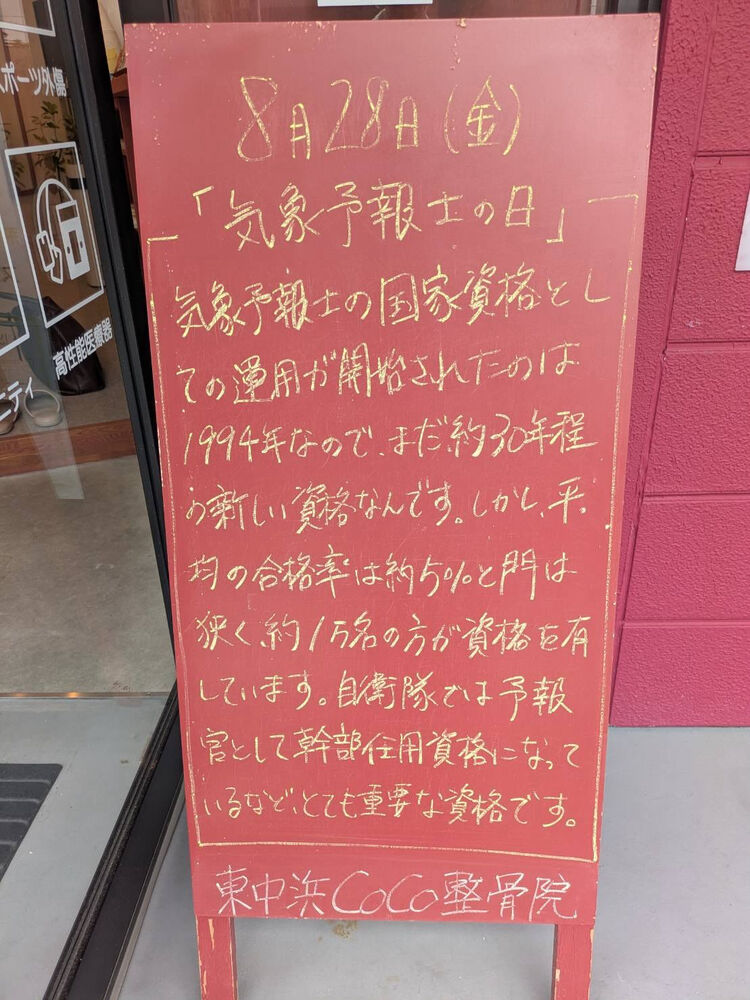 8月28日(金)
「気象予報士の日」
気象予報士の国家資格とし
ての運用が開始されたのは
1994年なので、まだ約30年程
の新しい資格なんです。しかし、平
均の合格率は約5%と門は
狭く、約1万名の方が資格を有
しています。自衛隊では予報
官として幹部任用資格になって
いるなど、とても重要な資格です。
東中浜CoCo整骨院
スポーツ外傷
高性能医療器
ニティ